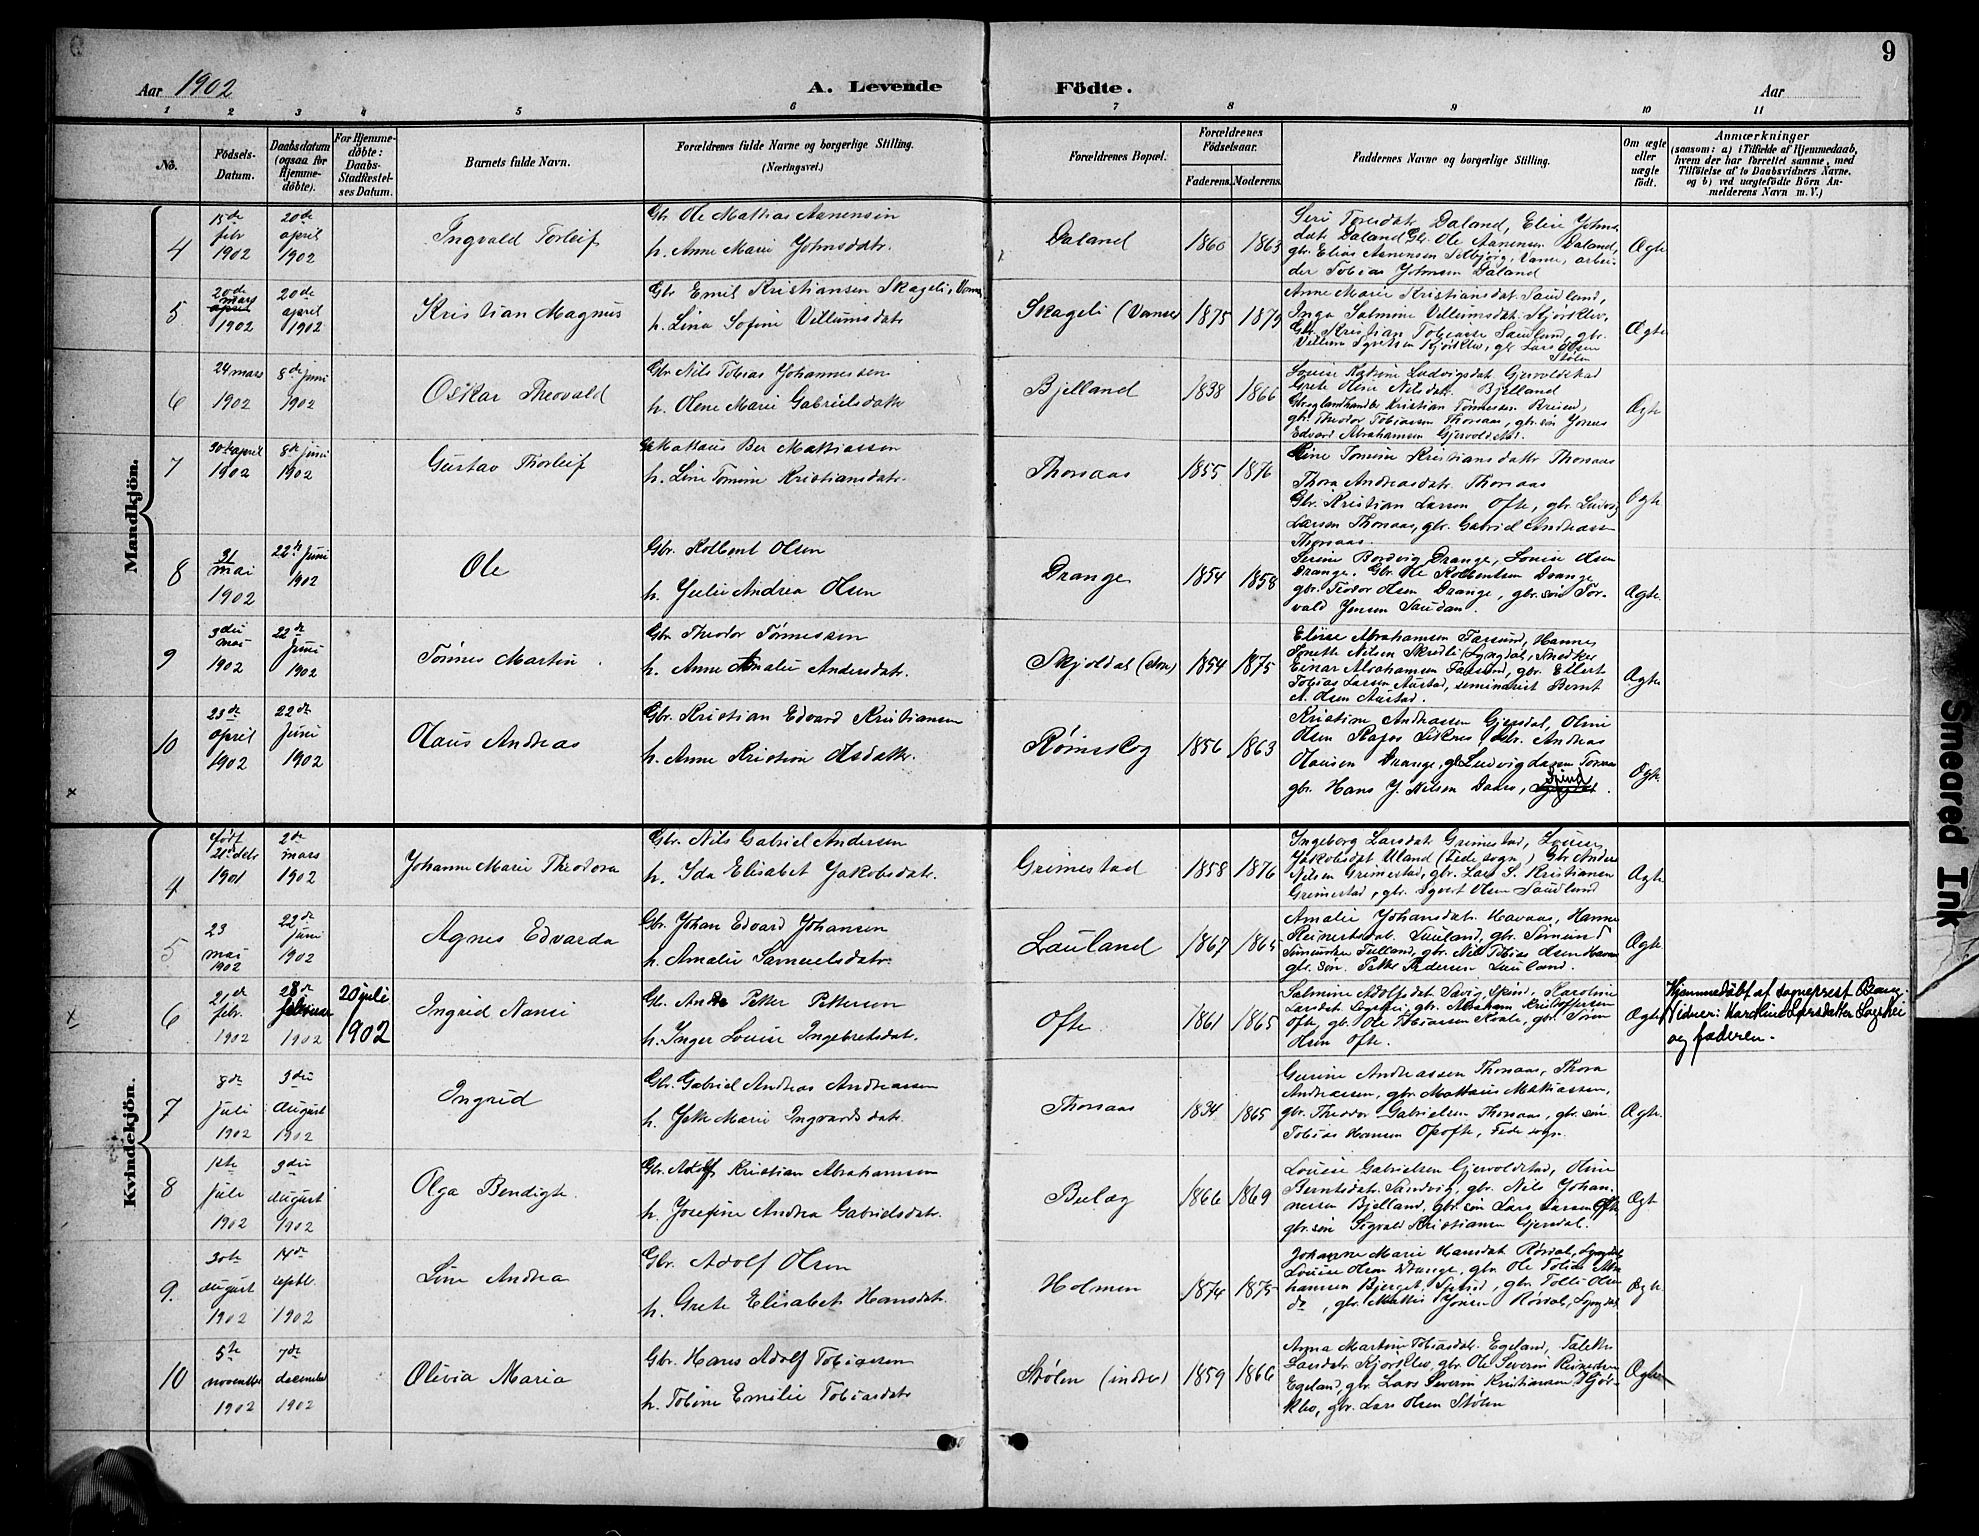 9
Aar 1902
A. Levende
Födte.
Aar
1 2 3 4 5 6 7 8 9 10 11
No.
Födsels-
Datum.
Daabsdatum
(ogsaa for
Hjemme-
döbte).
For Hjemme-
döbte:
Daabs-
Stadfæstel-
ses Datum.
Barnets fulde Navn.
Forældrenes fulde Navne og borgerlige Stilling.
(Næringsvei.)
Forældrenes Bopæl.
Forældrenes
Födselsaar.
Faderens. Moderens.
Faddernes Navne og borgerlige Stilling.
Om ægte
eller
uægte
födt.
Anmærkninger
(saasom: a) i Tilfælde af Hjemmedaab,
hvem der har forrettet samme, med
Tilföielse af to Daabsvidners Navne,
og b) ved uægtefödte Börn An-
melderens Navn m. V.)
Mandkjön.
4
15de
febr
1902
20de
april
1902
Ingvald Torleif
Gbr. Ole Mathias Aanensen
h. Anne Marie Johnsdatr.
Daland
1860 1863
Siri Toresdatr Daland, Elise Johns
datr Daland Gbr. Ole Aanensen Daland,
gbr. Elias Aanensen Selbjörg, Vanse, arbei-
der Tobias Johnsen Daland
Ægte
5
20de
mars
april
1902
20de
april
1902
Kristian Magnus
Gbr Emil Kristiansen Skageli, Vanse
h. Lina Sofine Villumsdatr
Skageli (Vanse)
1875 1879
Anne Marie Kristiansdatr Saudland,
Inga Salmine Villumsdatr Kjörklev,
Gbr. Kristian Tobiassen Saudland, gbr.
Villum Syvertsen Kjörklev, gbr Lars Olsen
Stölen
Ægte
6
24 mars
1902
8de juni
1902
Oskar Theovald
Gbr Nils Tobias Johannessen
h. Olene Marie Gabrielsdatter
Bjelland
1838 1866
Louise Katrine Ludvigsdatr Gjervoldstad
Grete Oline Nilsdatr. Bjelland
Kristian Tönnessen
gbr. Theodor Tobiassen Thorsaas, gbr. sön Jonas
Edvard Abrahamsen Gjervoldstad.
Ægte
7
30te april
1902
8de juni
1902
Gustav Thorleif
Gbr Mattæus Ber Mathiassen
h. Line Tomine Kristiansdatr.
Thorsaas
1855 1876
Line Tomine Kristiansdatr Thorsaas
Thora Andreasdatr. Thorsaas
Gbr. Kristian Larsen Ofte, gbr. Ludvig
Larsen Thorsaas, gbr. Gabriel Andreassen
Thorsaas.
Ægte
8
31
mai
1902
22de juni
1902
Ole
Gbr. Kolbent Olsen
h. Julie Andrea Olsen
Drange
1854 1858
Serine Bordvig Drange, Louise Olsen
Drange. Gbr Ole Kolbentsen Drange
gbr. Teodor Olsen Drange, gbr. sön Tor-
vald Jensen Saudan
Ægte.
9
3die
mai
1902
22de
juni
1902
Tönnes Martin
Gbr. Theodor Törnessen
h. Anne Amalie Andersdatr.
Skjoldal
1854 1875
Elise Abrahamsen Farsund, Hanne
Jonette Nilsen Skredli Lyngdal, Snedker
Einar Abrahamsen Farsund, gbr. Ellert
Tobias Larsen Austad, seminarist Bernt
A. Olsen Austad.
Ægte
10
23de
april
1902
22de
juni
1902
Olaus Andreas
Gbr. Kristian Edvard Kristiansen
h. Anne Kristine Olsdatter.
Römeskog
1856 1863
Kristine Andreassen Gjersdal, Oline
Olsen Rafos Liknes, Gbr. Andreas
Olausen Drange, gbr Ludvig Larsen
gbr. Hans J. Nilsen, Spind
Ægte.
x
Kvindekjön.
4
født
21de
1901
2de
mars
1902
Johanne Marie Theodora
Gbr. Nils Gabriel Andersen
h. Ida Elisabet Jakobsdatr.
Grimestad
1858 1876
Ingeborg Larsdatr Grimestad, Louise
Jakobsdatr Uland (Fede sogn) Gbr Anders
Nilsen Grimestad, gbr. Lars S. Kristiansen
Grimestad, gbr. Syvert Olsen Saudland
Ægte
5
23
mai
1902
22de
juni
1902
Agnes Edvarda
Gbr. Johan Edvard Johansen
h. Amalie Samuelsdatr.
Lauland
1867 1865
Amalie Johansdatr. Havaas, Hanne
Reinertsdatr. Lauland, gbr. Simund
Simundsen, gbr. Nils Tobias Olsen Havaas
gbr. sön. Petter Pedersen Lauland.
Ægte
x
6
21de
febr.
1902
28de
februar
1902
20 juli
1902
Ingrid Nansi
Gbr. Andr. Petter Pettersen
h. Inger Louise Ingebretsdatr.
Ofte.
1861 1865
Salmine Adolfsdatr, Spind, Karoline
Larsdatr. Lögskei, gbr. Abraham Kristoffersen
Ofte, gbr. Ole Tobiassen, gbr. Sören
Olsen Ofte.
Ægte
Hjemmedöbt af sogneprest Bang.
Vidner: Karoline Larsdatter Logskei
og faderen.
7
8de
juli
1902
3die
august
1902
Ingrid
Gbr. Gabriel Andreas Andreassen
h. Jette Marie Ingvardsdatr.
Thorsaas
1834 1865
Gusine Andreassen Thorsaas, Thora
Andreassen, gbr. Mattæus Mathiassen,
gbr. Theodor Gabrielsen Thorsaas, gbr. sön
Tobias Hansen Opofte, Fede sogn.
Ægte.
8
1ste
juli
1902
3die
august
1902
Olga Bendigte.
Gbr. Adolf Kristian Abrahamsen
h. Josefine Andrea Gabrielsdatr.
Bulæg
1866 1869
Louise Gabrielsen Gjervoldstad, Oline
Berntsdatr. Sandvig, gbr. Nils Johan-
nessen Bjelland, gbr. sön Lars Larsen Ofte
gbr. sön Sigvald Kristiansen Gjersdal.
Ægt
9.
30te
august
1902
14de
septbr.
1902
Line Andrea
Gbr. Adolf Olsen
h. Grete Elisabet Hansdatr.
Holmen
1874 1875
Johanne Marie Hansdatr Rördal, Lyngdal
Louise Olsen Drange, gbr. Ole Tobias
hansen Bjerget, Spind, gbr. Tolli Olsen
do, gbr. Mathis Jonsen Rördal, Lyngdal
Ægte.
10
5te
november
1902
7de
december
1902
Olivia Maria
Gbr. Hans Adolf Tobiassen
h. Tobine Emilie Tobiasdatr
Stölen (indre)
1859 1866
Anna Martine Tobiasdatr. Egeland, Talette
Larsdatr. Kjörklev, gbr. Ole Severin Reinertsen
Egeland, gbr. Lars Severin Kristiansen Kjör-
klev, gbr. Lars Olsen Stölen
Ægte
Smeared Ink